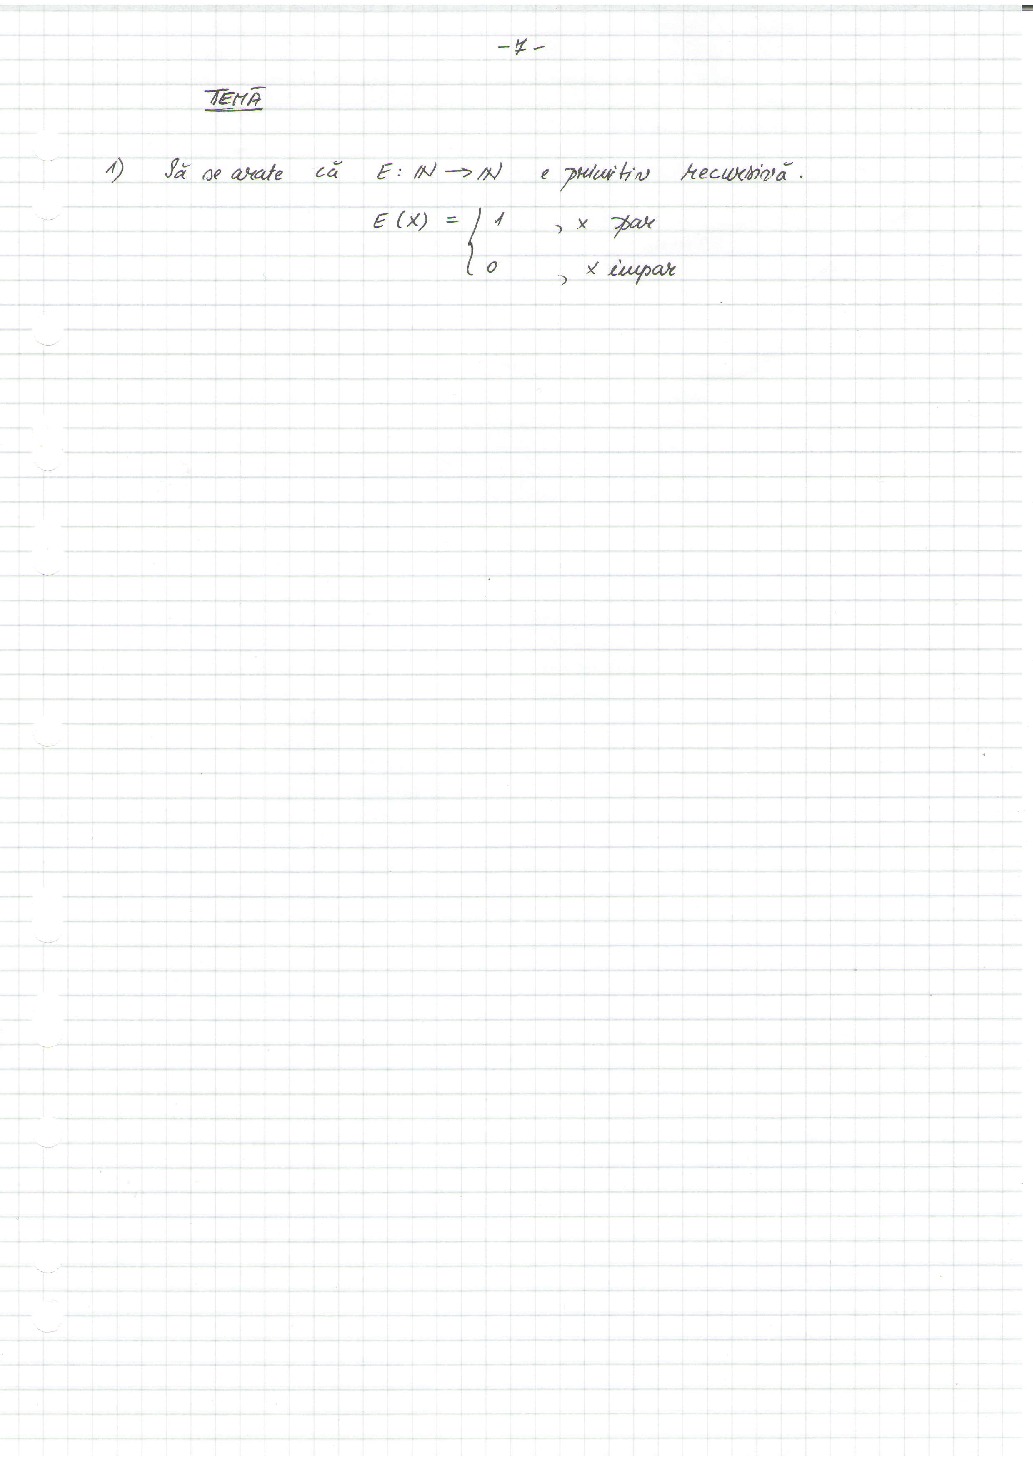 -7-
TEMĂ
1) Să se arate că E: ℕ → ℕ e primitiv recursivă.
E(x) = { 1 , x par
0 , x impar